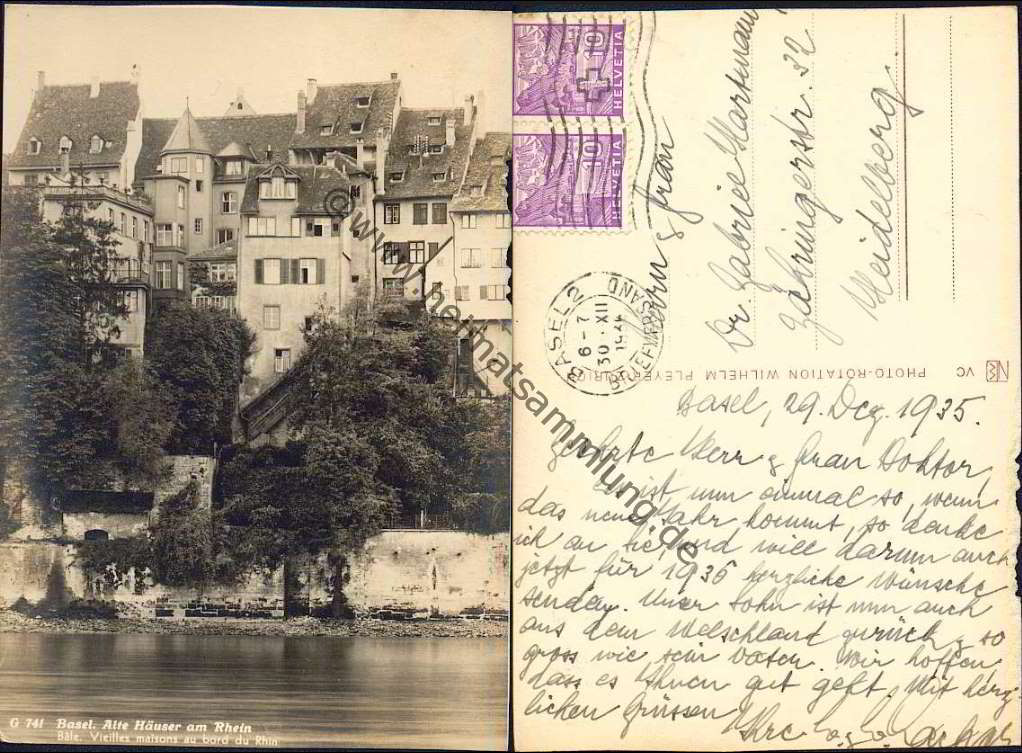 G 741 Basel. Alte Häuser am Rhein
Bâle. Vieilles maisons au bord du Rhin
© www.heimatsammlung.de
10
HELVETIA
10
HELVETIA
BASEL 2
30. XII
6-7
BRIEFVERSAND
Herrn & Frau
Dr Gabriel Hartmann
Zähringerstr. 32
Heidelberg.
PHOTO-ROTATION WILHELM PLEYER ZÜRICH
VC
Basel, 29. Dez. 1935.
Geehrte Herr & Frau Doktor,
es ist nun einmal so, wenn
das neue Jahr kommt, so denke
ich an Sie, und will darum auch
jetzt für 1936 herzliche Wünsche
senden. Unser Sohn ist nun auch
aus dem Welschland zurück, & so
gross wie sein Vater. Wir hoffen,
dass es Ihnen gut geht. Mit herz-
lichen Grüssen
Ihre